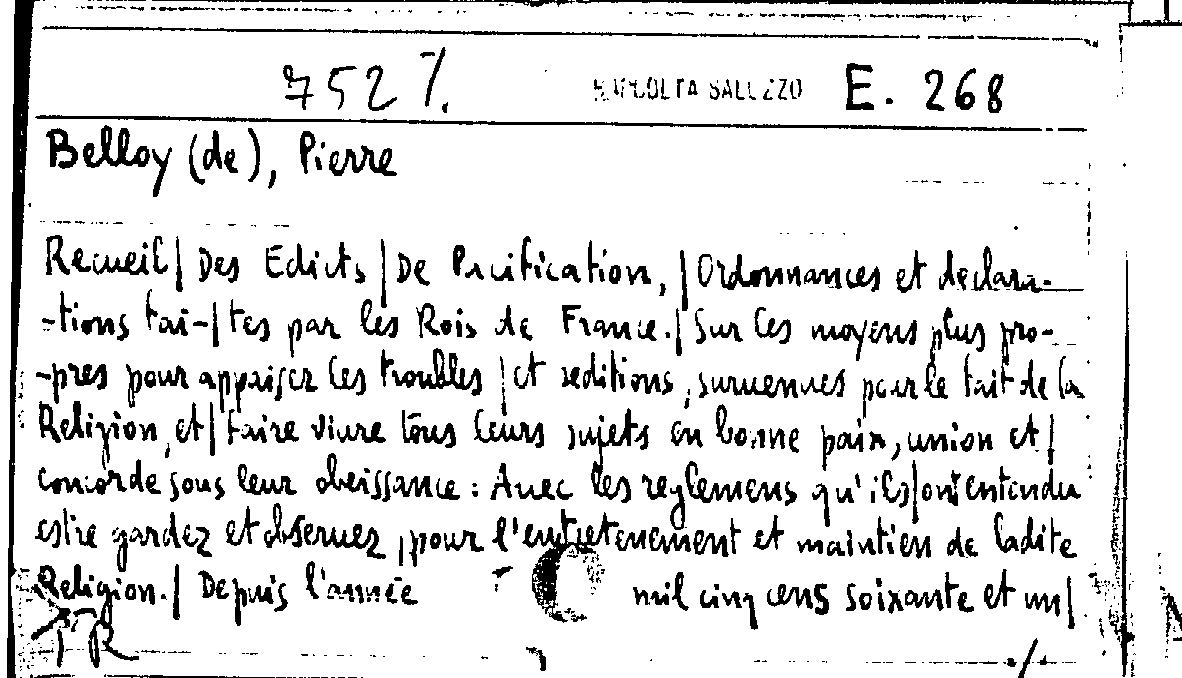 7521. RACCOLTA SALUZZO E. 268
Belloy (de), Pierre
Recueil | Des Edicts | De Pacification, | Ordonnances et declara-
-tions fai-|tes par les Rois de France. | Sur les moyens plus pro-
-pres pour appaiser les troubles | et seditions, suruenues pour le fait de la
Religion, et | faire viure tous leurs sujets en bonne paix, union et |
concorde sous leur obeissance : Auec les reglemens qu'ils | ont entendu
estre gardez et obseruez, pour l'entretenement et maintien de ladite
Religion. | Depuis l'année mil cinq cens soixante et un |
./.